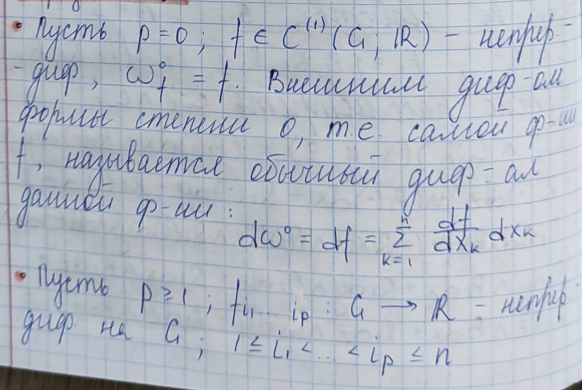 • Пусть p=0; f ∈ C⁽¹⁾(G; ℝ) – непрер.-
-диф., ω⁰_f = f. Внешним диф-ом
формы степени 0, т.е. самой ф-ии
f, называется обычный диф-ал
данной ф-ии:
dω⁰ = df = ∑_{k=1}^{n} df/dx_k dx_k
• Пусть p≥1; f_{i₁...i_p} : G → ℝ – непрер-
диф на G; 1≤i₁<...<i_p≤n